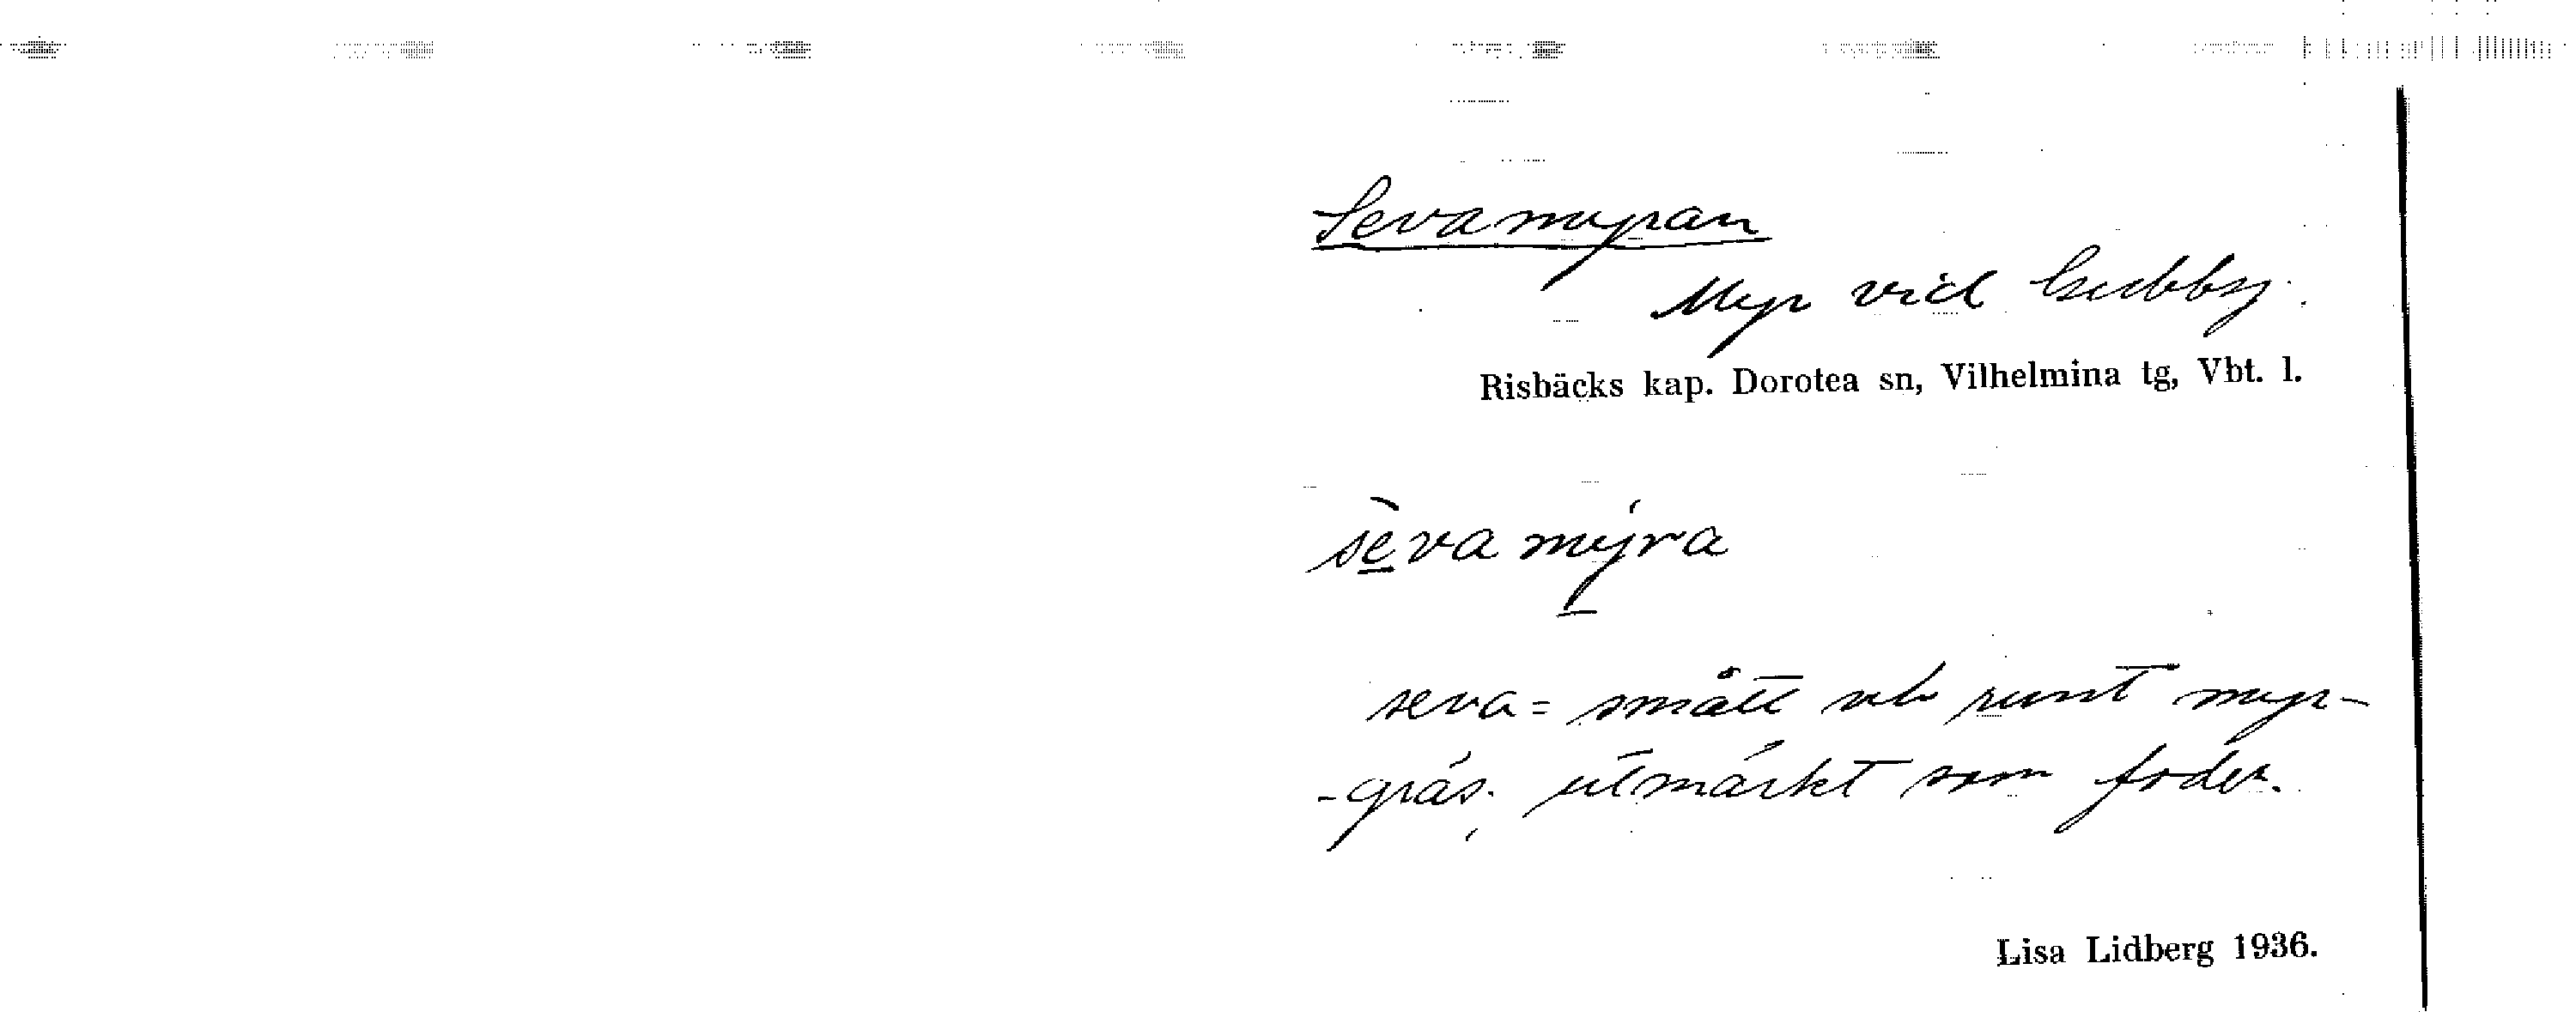 Sevamyran
Myr vid Gubbsj.
Risbäcks kap. Dorotea sn, Vilhelmina tg, Vbt. l.
sèva mýra
seva = smått o runt myr-
-gräs, utmärkt som foder.
Lisa Lidberg 1936.